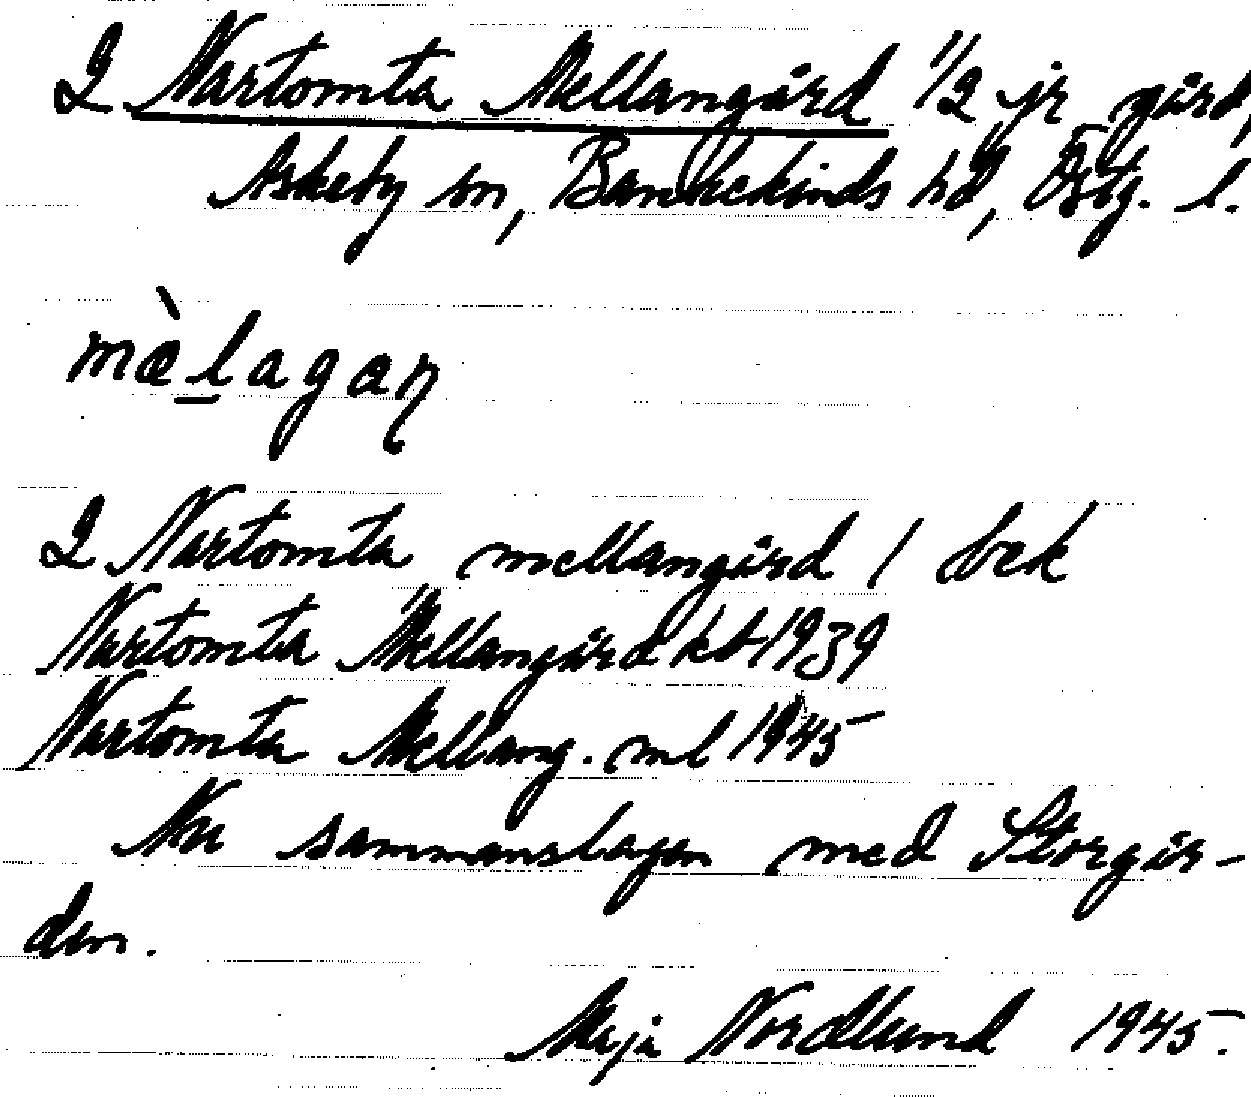 2 Nartomta Mellangård 1/2 jr gård,
Askeby sn, Bankekinds hd, Östg. l.
mæ̀lagaꞃ
2 Nartomta mellangård / bek
Nartomta Mellangård kb 1939
Nartomta Mellang. ml 1945
Nu sammanslagen med Storgår-
den.
Maja Nordlund 1945.